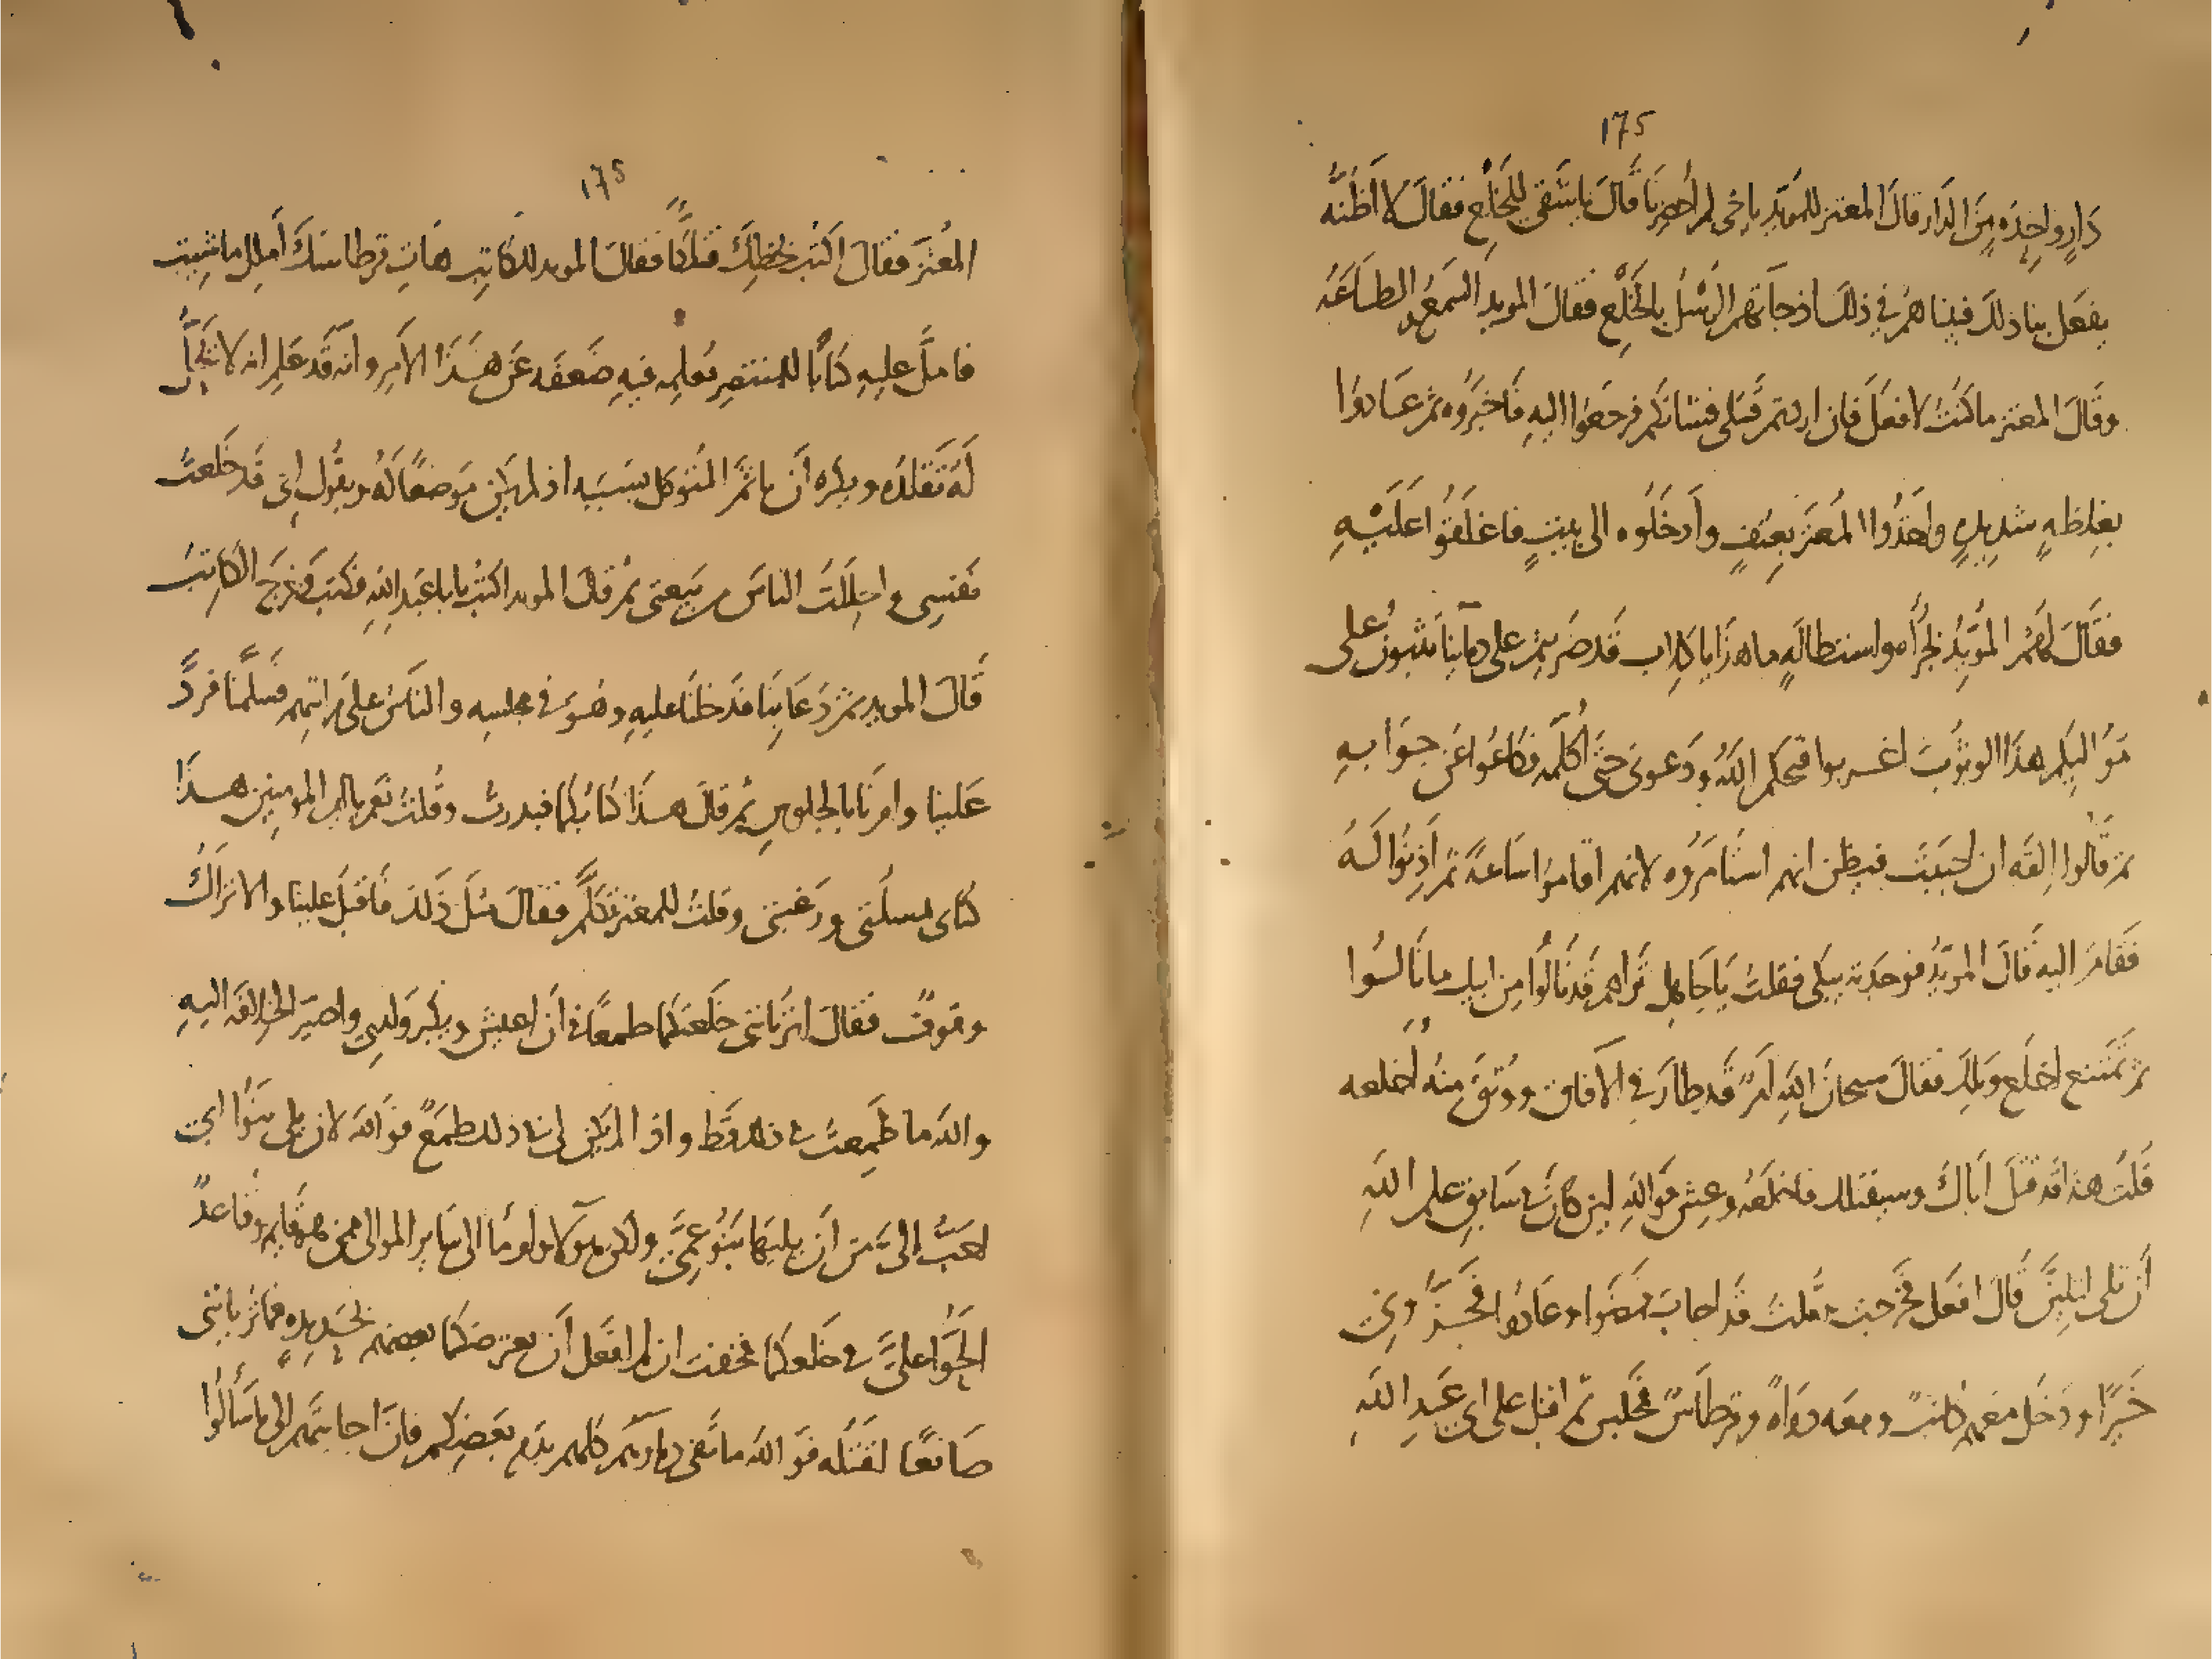 175
دَارٍ واحِدَه مِنَ الدَار قالَ المعتز للمؤيّد يا اخى لم اُحضِرنَا قالَ يا شَقى للخَلع فقالَ لا اَظُنّه
يفعَل بنا ذلكَ فبينا هُم في ذلكَ اذ جآتهم الرسُل بالخَلع فقالَ المويد السَمعُ والطاعَهُ
وقَالَ المعتز ما كنتُ لافعَل فان اردتم قَتلى فشانكم فرجَعُوا اليهِ فاخبَرُوه ثم عَادوُا
بغِلظهٍ شديدهٍ واخَذُوا المُعتز بعنفٍ وأدخَلُوه الى بيتٍ فاغلَقُوا عَلَيْهِ
فقَالَ لهُم المُؤيّدُ بجُرأه واستطالهٍ ما هذَا يا كلاب قَد ضَريتُم على دمآينا تثبون على
مَوَاليكم هذَا الوثوبَ اغربوا قبحكم اللهُ ودَعونى حَتى اُكلّمَه فكاعُوا عَن جوَابهِ
ثم قالُوا اِلقَه ان احببتَ فيظن انهم استَامَرُوه لانهم اقامُوا سَاعهً ثم اَذِنُوا لَهُ
فقَامَ اليه قالَ المؤيّدُ فوَجَدته يبكى فقلتُ يَا جَاهِل تَراهم قَد نَالُوا مِن ابيك ما نَالُوا
ثم تمتنع اخلَع وَيلكَ فقالَ سبحانَ اللهِ اَمرٌ قَد طارَ في الآفاق ووُثِقَ مِنهُ اَخلعه
قلتُ هذا قَد قتلَ اَباكَ وسيقتلك فاخلَعهُ وعِش فوَاللهِ لين كانَ في سَابِق علم اللهِ
أن تلى لتلينَّ قالَ افعَل فخَرجت وقلتُ قَد اجابَ فمضَوا وعَادُوا فجَزَونى
خَيرًا ودَخَل معَهم كاتبٌ ومعَه دوَاهٌ وقرطاسٌ فجَلس ثم اقبل على ابى عَبدِ اللهِ
175
المُعتَز فقالَ اكتُب بخطكَ فتلكّأ فقالَ المويد للكاتِب هَاتِ قرطاسكَ اَملِل ما شِيتَ
فاملَّ عليهِ كتَابًا للمنتصِر يُعلمه فيهِ ضَعفَه عَن هَذَا الاَمرِ وانّه قَد عَلِم انه لا يَحِلّ
لَهُ تَقلدُه ويكره اَن ياثَمَ المُتَوكل بسَببه اذ لم يَكن مَوضعًا لَهُ ويقُول انى قَد خَلعتُ
نفسِى واحلَلتُ الناسَ من بَيعتى ثم قالَ المويد اكتُب يا با عَبدِ اللهِ فكتبَ وخَرجَ الكاتِبُ
قَالَ المويد ثم دَعَا بِنَا فدَخلنَا عليهِ وهُوَ في مجلسِه والناسُ على مَراتبهم فسَلّمنَا فردَّ
عَلينا وامَرنَا بالجلوسِ ثم قالَ هذَا كتابُكما فبدرتُ وقُلتُ نَعَم يا امير المومنِين هذَا
كتابى بمسلَتى ورَغبتى وقلتُ للمعتز تكلّم فقالَ مثلَ ذلكَ فاقبَلَ علينا والاتراكُ
وقوفٌ فقالَ اتَرَيانى خلَعتكما طمعًا في اَن اعيش ويكبر وَلدى واصَيّر الخلافَه اليهِ
واللهِ ما طَمِعتُ في ذلكَ قَط واذا لم يَكن لى في ذلك طمَعٌ فوَاللهِ لان يلى بَنُوا ابى
احَبُّ اِلىَّ من اَن يليَها بَنُو عمَّى ولكن هولآء واومَا الى سَاير الموالى ممن هو قايم وقاعدٌ
الحّوا علىَّ في خلعكما فخفت ان لم افعَل اَن يعترضكما بعضهم بحَديدهٍ فما تَريانى
صَانعًا اقتله فوَاللهِ ما تَفى دماوهم كلهم بدَم بعَضِكم فكان اجابتهم الى ما سَألُوا